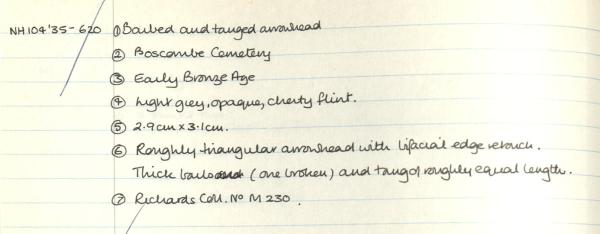 NH104'35-620 ① Barbed and tanged arrowhead
② Boscombe Cemetery
③ Early Bronze Age
④ Light grey, opaque, cherty flint.
⑤ 2.9cm x 3.1cm.
⑥ Roughly triangular arrowhead with bifacial edge retouch.
Thick barbs (one broken) and tang of roughly equal length.
⑦ Richards Coll. No M 230.